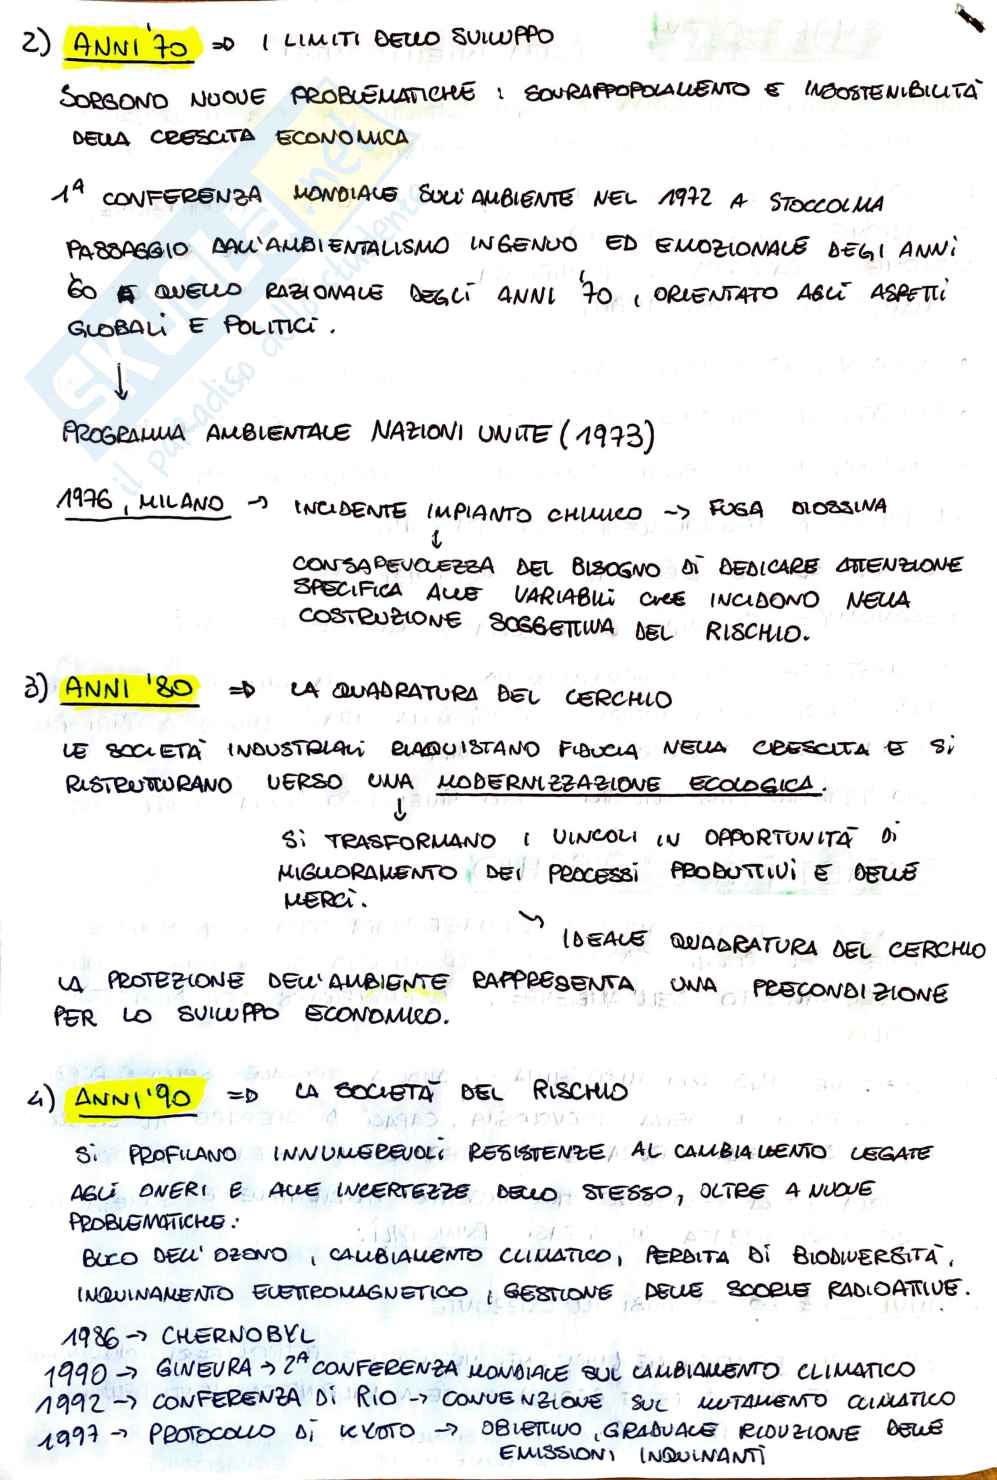 2) ANNI '70 => I LIMITI DELLO SVILUPPO
SORGONO NUOVE PROBLEMATICHE : SOVRAPPOPOLAMENTO E INSOSTENIBILITÀ
DELLA CRESCITA ECONOMICA
1ª CONFERENZA MONDIALE SULL'AMBIENTE NEL 1972 A STOCCOLMA
PASSAGGIO DALL'AMBIENTALISMO INGENUO ED EMOZIONALE DEGI ANNI
'60 A QUELLO RAZIONALE DEGLI ANNI '70, ORIENTATO AGLI ASPETTI
GLOBALI E POLITICI.
↓
PROGRAMMA AMBIENTALE NAZIONI UNITE (1973)
1976, MILANO -> INCIDENTE IMPIANTO CHIMICO -> FUGA DIOSSINA
↓
CONSAPEVOLEZZA DEL BISOGNO DI DEDICARE ATTENZIONE
SPECIFICA ALLE VARIABILI CHE INCIDONO NELLA
COSTRUZIONE SOGGETTIVA DEL RISCHIO.
3) ANNI '80 => LA QUADRATURA DEL CERCHIO
LE SOCIETÀ INDUSTRIALI RIAQUISTANO FIDUCIA NELLA CRESCITA E SI
RISTRUTTURANO VERSO UNA MODERNIZZAZIONE ECOLOGICA.
↓
SI TRASFORMANO I VINCOLI IN OPPORTUNITÀ DI
MIGLIORAMENTO DEI PROCESSI PRODUTTIVI E DELLE
MERCI.
↘ IDEALE QUADRATURA DEL CERCHIO
LA PROTEZIONE DELL'AMBIENTE RAPPRESENTA UNA PRECONDIZIONE
PER LO SVILUPPO ECONOMICO.
4) ANNI '90 => LA SOCIETÀ DEL RISCHIO
SI PROFILANO INNUMEREVOLI RESISTENZE AL CAMBIAMENTO LEGATE
AGLI ONERI E ALLE INCERTEZZE DELLO STESSO, OLTRE A NUOVE
PROBLEMATICHE:
BUCO DELL'OZONO, CAMBIAMENTO CLIMATICO, PERDITA DI BIODIVERSITÀ,
INQUINAMENTO ELETTROMAGNETICO, GESTIONE DELLE SCORIE RADIOATTIVE.
1986 -> CHERNOBYL
1990 -> GINEVRA -> 2ª CONFERENZA MONDIALE SUL CAMBIAMENTO CLIMATICO
1992 -> CONFERENZA DI RIO -> CONVENZIONE SUL MUTAMENTO CLIMATICO
1997 -> PROTOCOLLO DI KYOTO -> OBIETTIVO, GRADUALE RIDUZIONE DELLE
EMISSIONI INQUINANTI
SKUOLA.net
il paradiso dello studente